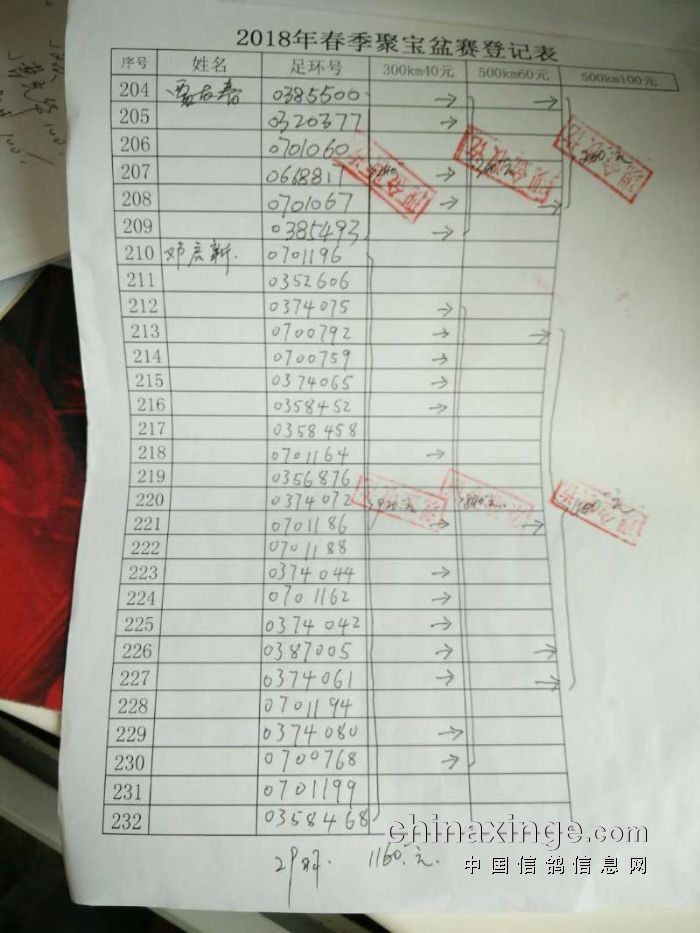 2018年春季聚宝盆赛登记表
序号 姓名 足环号 300km40元 500km60元 500km100元
204 0385500 → →
205 0320377 →
206 0701060
207 066881 →
208 0701067 → →
209 0385493 →
210 邓彦新 0701196
211 0352606
212 0374075 →
213 0700792 → →
214 0700759 →
215 0374065 →
216 0358452 →
217 0358458
218 0701164 →
219 0356876
220 0374072
221 0701186 → →
222 0701188
223 0374044 →
224 0701162 →
225 0374042 →
226 0387005 → →
227 0374061 → →
228 0701194
229 0374080 →
230 0700768 →
231 0701199
232 0358468
29羽. 1160元.
chinaxinge.com
中国信鸽信息网